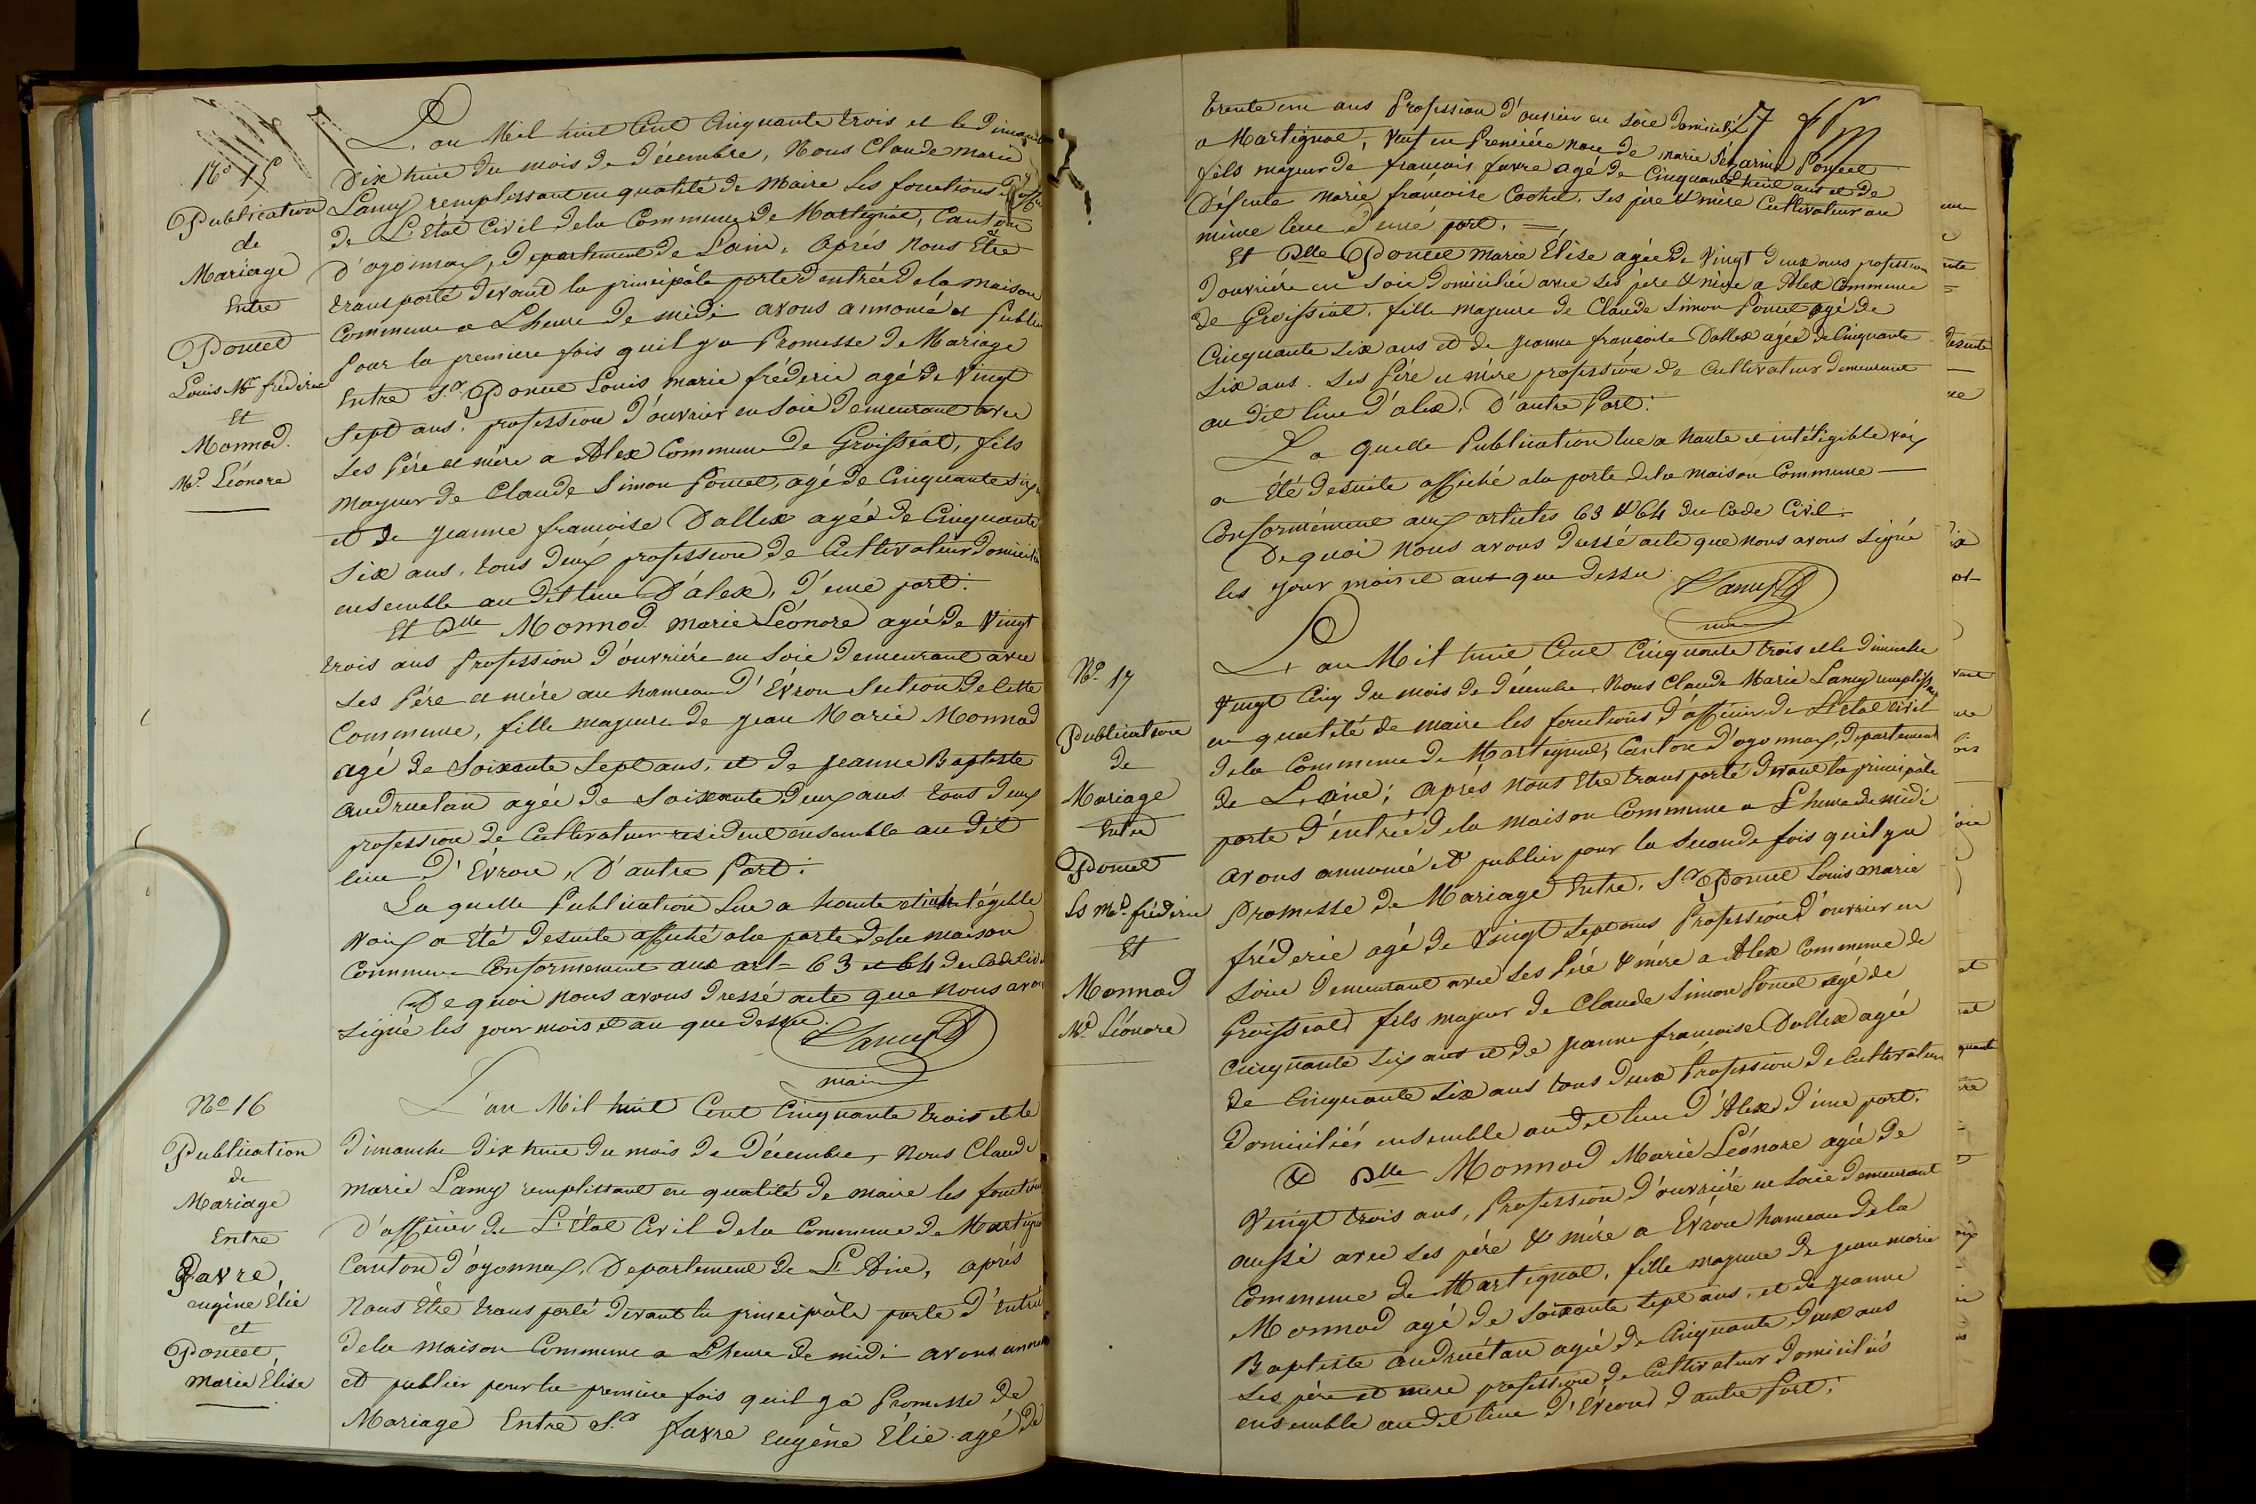 No 15
Publication
de
Mariage
Entre
Poncet
Louis Me fréderic
Et
Monnod
Me Léonore
L'an Mil huit Cent Cinquante trois et le Dimanche
Dix huit du mois de Décembre, Nous Claude Marie
Lamy remplissant en qualité de Maire les fonctions
de L'Etat Civil de la Commune de Martignat, Canton
D'oyonnax, département de L'ain. Après nous Etre
transporté devant la principâle porte d'entrée de la maison
Commune a Lheure de midi avons annoncé et Publier
Pour la premiere fois quil y a Promesse de Mariage
Entre Sr. Poncet Louis marie fréderic agé de Vingt
Sept ans, profession d'ouvrier en Soie demeurant avec
Ses Père et mère a Alex Commune de Groissiat, fils
Majeur de Claude Simon Poncet, agé de Cinquante Six
et de Jeanne francoise Dallex agée de Cinquante
Six ans, tous deux profession de Cultivateur Domicilié
ensemble au dit lieu D'alex, d'une part.
Et Dlle Monnod marie Léonore agée de Vingt
trois ans Profession d'ouvrière en Soie demeurant avec
Ses Père et mère au hameau D'Evron Section de Cette
Commune, fille majeure de jean Marie Monnod
agé de Soixante Sept ans, et de jeanne Baptiste
andruetan agée de Soixante Deux ans tous deux
profession de Cultivateur residant ensemble au dit
lieu D'Evron, D'autre Part.
La quelle Publication Lue a haute et intelégible
Voix a Eté desuite affiché ala porte dela maison
Commune Conformement aux art= 63 et 64 du Code Civil
De quoi nous avons dressé acte que nous avons
Signé les jour mois et an que dessus.
Lamy
maire
No 16
Publication
de
Mariage
Entre
Favre
eugène Elie
et
Poncet
Marie Elise
L'an Mil huit Cent Cinquante trois et le
Dimanche dix huit du mois de Décembre, Nous Claude
Marie Lamy remplissant en qualité de maire les fonctions
D'officier de L'état Civil dela Commune de Martignat
Canton d'oyonnax, Département de L'Ain, après
Nous Etre transporté devant la principâle porte d'Entrée
dela maison Commune a Lheure de midi avons annoncé
et publier pour la première fois quil y a Promesse de
Mariage Entre Sr. favre Eugène Elie agé de
trente un ans Profession d'ouvrier en Soie Domicilié
a Martignat, Veuf en Premiére noce de marie Séraphine Poncet
fils majeur de francois favre agé de Cinquante huit ans et de
Défunte Marie francoise Cochet, Ses père et mère Cultivateur au
même lieu d'une part. =
Et Dlle Poncet Marie Elise agée de Vingt deux ans profession
d'ouvrière en Soie domiciliée avec Ses père et mère a Alex Commune
de Groissiat, fille majeure de Claude Simon Poncet agé de
Cinquante Six ans et de jeanne françoise Dallex agée de Cinquante
Six ans. Ses Père et mère profession de Cultivateur demeurant
au dit lieu d'alex, D'autre Part.
La quelle Publication lue a haute et inteligible voix
a Eté desuite affiché ala porte dela maison Commune
Conformément aux articles 63 et 64 du Code Civil.
De quoi nous avons dressé acte que nous avons Signé
les jour mois et ans que dessus
Lamy
maire
No. 17
Publication
de
Mariage
Entre
Poncet
Ls Me. fréderic
Et
Monnod
Me Léonore
L'an Mil huit Cent Cinquante trois et le dimanche
Vingt Cinq du mois de décembre, Nous Claude Marie Lamy remplissant
en qualité de maire les fonctions d'officier de L'état civil
dela Commune de Martignat, Canton d'oyonnax, département
de L'aine; Après nous Etre transporté devant la principâle
porte d'entrée dela maison Commune a Lheure de midi
avons annoncé et publier pour la Seconde fois quil y a
Promesse de Mariage Entre, Sr. Poncet Louis marie
fréderic agé de Vingt Sept ans Profession d'ouvrier en
Soie demeurant avec Ses Père et mère a Alex Commune de
Groissiat, fils majeur de Claude Simon Poncet agé de
Cinquante Six ans et de jeanne francoise Dallex agée
de Cinquante Six ans tous deux Profession de Cultivateur
domiciliés ensemble au dit lieu d'Alex d'une part.
Et Dlle Monnod Marie Léonore agée de
Vingt trois ans, Profession d'ouvrière en Soie demeurant
aussi avec Ses père et mère a Evron hameau de la
Commune de Martignat, fille majeure de jean marie
Monnod agé de Soixante Sept ans, et de jeanne
Baptiste andruétan agée de Cinquante deux ans
Ses père et mere profession de Cultivateur domiciliés
ensemble au dit lieu d'Evron d'autre Part.